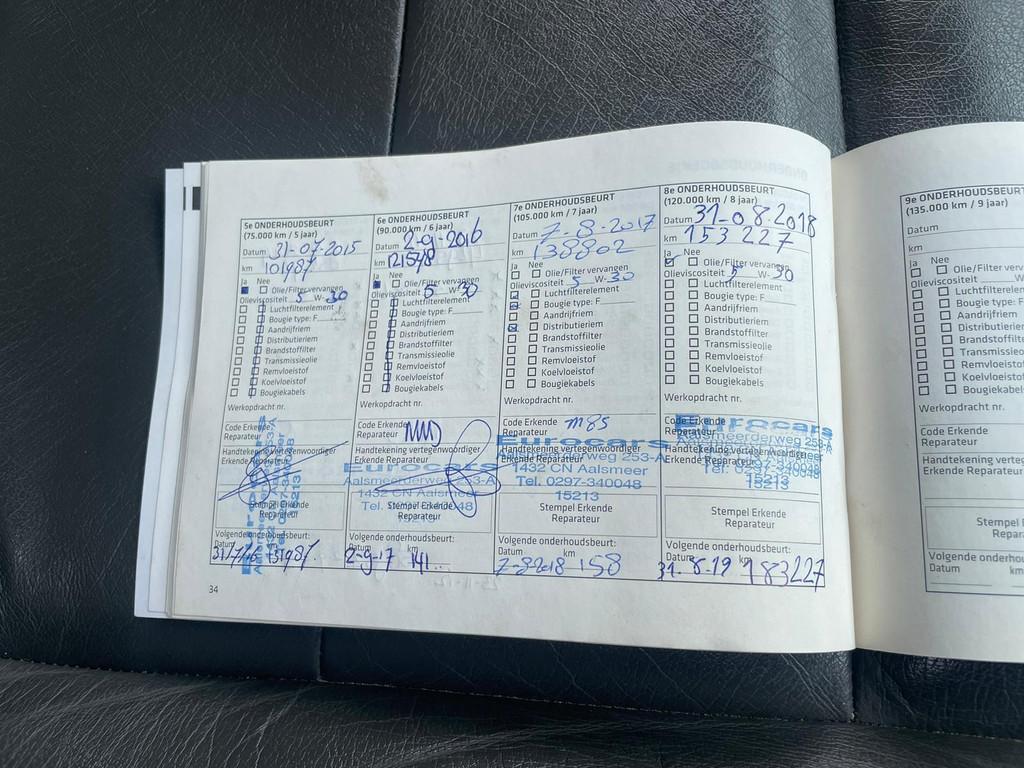 5e ONDERHOUDSBEURT
(75.000 km / 5 jaar)
Datum 31-07-2015
km 101987
Ja Nee
Olie/Filter vervangen
Olieviscositeit 5 W-30
Luchtfilterelement
Bougie type: F
Aandrijfriem
Distributieriem
Brandstoffilter
Transmissieolie
Remvloeistof
Koelvloeistof
Bougiekabels
Werkopdracht nr.
Code Erkende
Reparateur
Handtekening vertegenwoordiger
Erkende Reparateur
Stempel Erkende
Reparateur
Volgende onderhoudsbeurt:
Datum km
34
6e ONDERHOUDSBEURT
(90.000 km / 6 jaar)
Datum 2-9-2016
km 121548
Ja Nee
Olie/Filter vervangen
Olieviscositeit 5 W-30
Luchtfilterelement
Bougie type: F
Aandrijfriem
Distributieriem
Brandstoffilter
Transmissieolie
Remvloeistof
Koelvloeistof
Bougiekabels
Werkopdracht nr.
Code Erkende
Reparateur
Handtekening vertegenwoordiger
Erkende Reparateur
Eurocars
Aalsmeerderweg 253-A
1432 CN Aalsmeer
Stempel Erkende
Reparateur
Volgende onderhoudsbeurt:
Datum km
2-9-17 141..
7e ONDERHOUDSBEURT
(105.000 km / 7 jaar)
Datum 7-8-2017
km 138802
Ja Nee
Olie/Filter vervangen
Olieviscositeit 5 W-30
Luchtfilterelement
Bougie type: F
Aandrijfriem
Distributieriem
Brandstoffilter
Transmissieolie
Remvloeistof
Koelvloeistof
Bougiekabels
Werkopdracht nr.
Code Erkende
Reparateur M85
Eurocars
Handtekening vertegenwoordiger
Aalsmeerderweg 253-A
Erkende Reparateur
1432 CN Aalsmeer
Tel. 0297-340048
15213
Stempel Erkende
Reparateur
Volgende onderhoudsbeurt:
Datum km
7-8-2018 158
8e ONDERHOUDSBEURT
(120.000 km / 8 jaar)
Datum 31-08-2018
km 153227
Ja Nee
Olie/Filter vervangen
Olieviscositeit 5 W-30
Luchtfilterelement
Bougie type: F
Aandrijfriem
Distributieriem
Brandstoffilter
Transmissieolie
Remvloeistof
Koelvloeistof
Bougiekabels
Werkopdracht nr.
Code Erkende
Reparateur
Eurocars
Aalsmeerderweg 253-A
Handtekening vertegenwoordiger
Erkende Reparateur
Tel. 0297-340048
15213
Stempel Erkende
Reparateur
Volgende onderhoudsbeurt:
Datum km
31-8-19 183227
9e ONDERHOUDSBEURT
(135.000 km / 9 jaar)
Datum
km
Ja Nee
Olie/Filter
Olieviscositeit
Luchtfilterelemen
Bougie type: F
Aandrijfriem
Distributieriem
Brandstoffilte
Transmissieo
Remvloeistof
Koelvloeistof
Bougiekabel
Werkopdracht nr.
Code Erkende
Reparateur
Handtekening verteg
Erkende Reparateur
Stempel
Repar
Volgende onderhou
Datum km